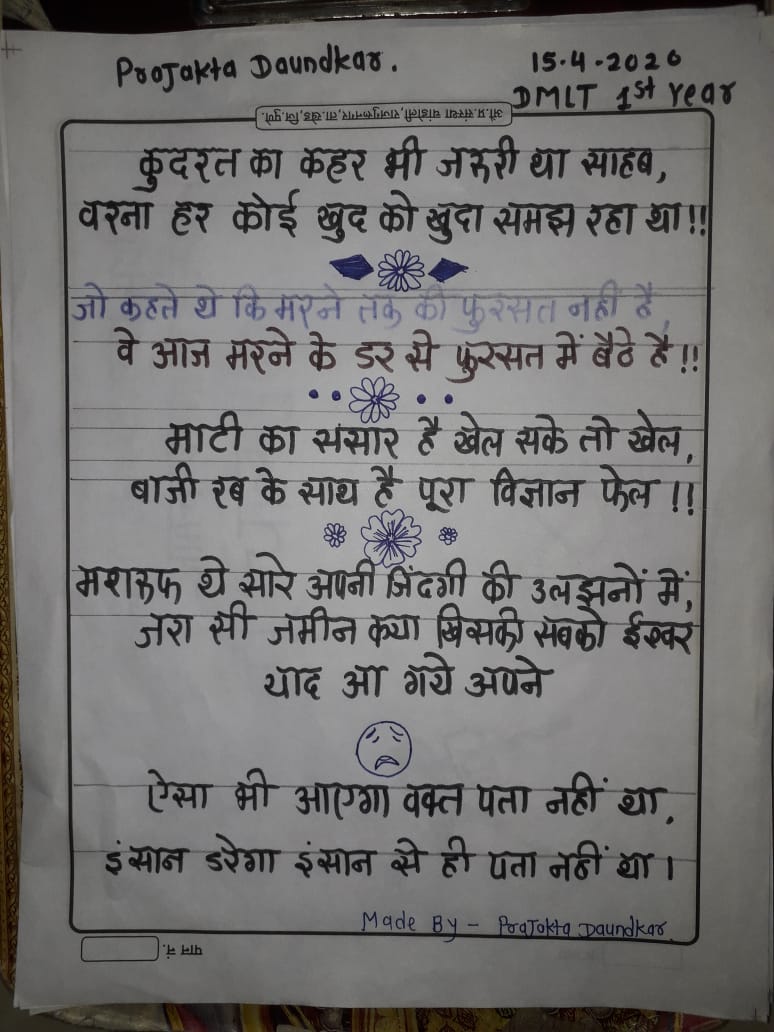 Projakta Daundkar.
15.4.2020
DMLT 1st Year
औ.प्र.संस्था चांडोली,राजगुरूनगर,ता.खेड,जि.पुणे.
कुदरत का कहर भी जरुरी था साहब,
वरना हर कोई खुद को खुदा समझ रहा था!!
जो कहते थे कि मरने तक की फुरसत नही है,
वे आज मरने के डर से फुरसत में बैठे है!!
माटी का संसार है खेल सके तो खेल,
बाजी रब के साथ है पूरा विज्ञान फेल !!
मशरूफ थे सारे अपनी जिंदगी की उलझनों में,
जरा सी जमीन क्या खिसकी सबको ईश्वर
याद आ गये अपने
ऐसा भी आएगा वक्त पता नहीं था,
इंसान डरेगा इंसान से ही पता नहीं था।
Made By - Projokta Daundkar.
पान नं.